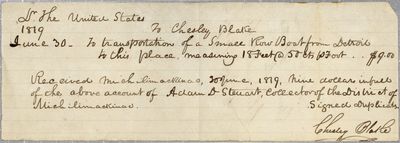 Dr The United States
To Chesley Blake
1819
June 30 - To transportation of a Small Row Boat from Detroit
to this place, measuring 18 Feet @ 50 cts Foot . . $9.00
Received Michilimackinac, 30 June, 1819, Nine dollars in full
of the above account of Adam D Steuart, Collector of the District of
Michilimackinac.
Signed Duplicates
Chesley Blake